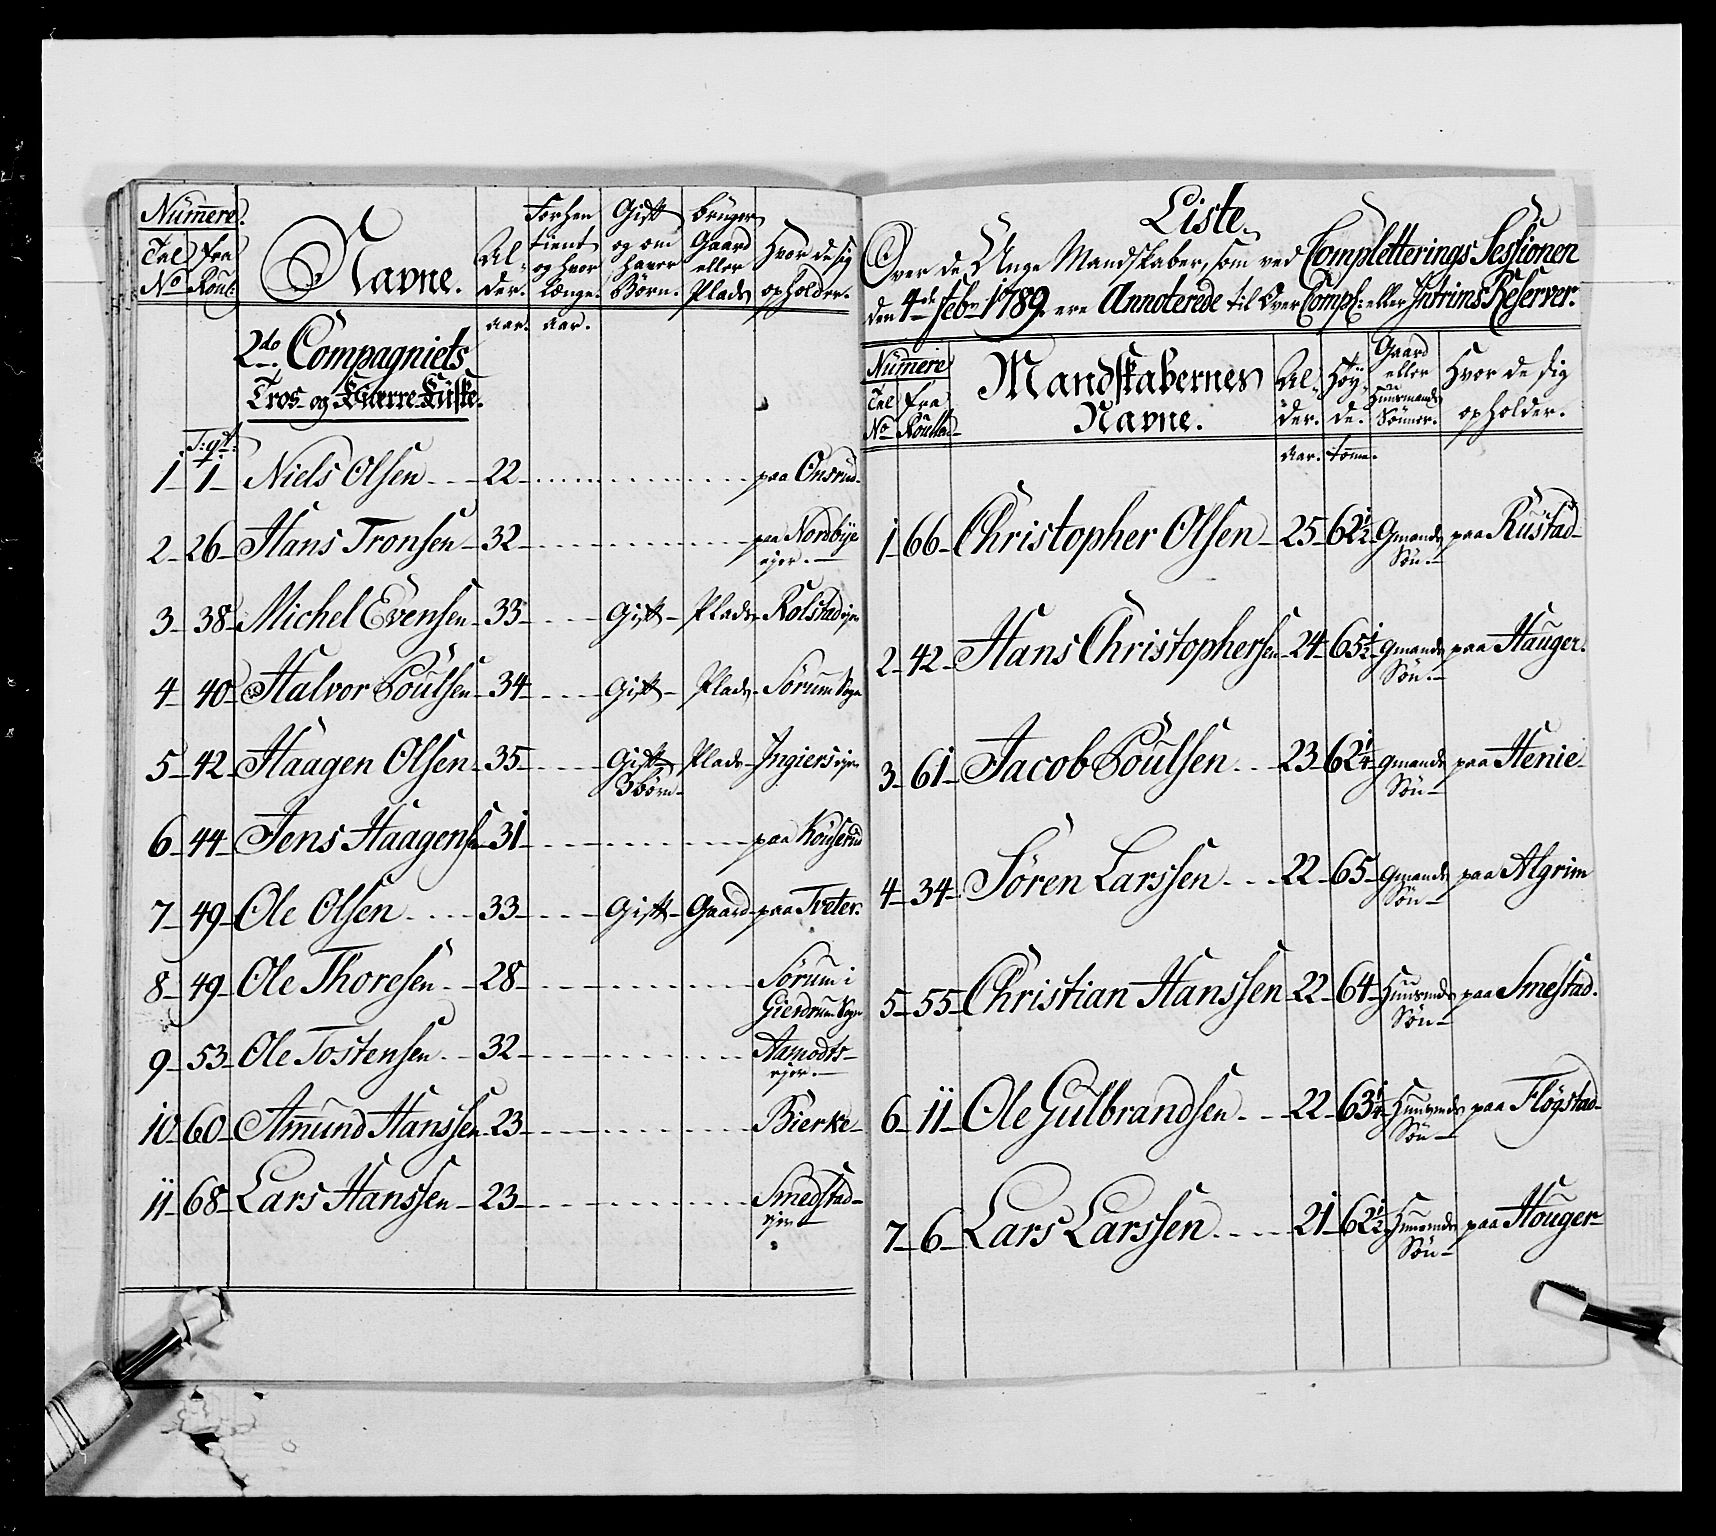 Numere. Navne. Al-der. Forhen tient og hvor Længe. Gift og om haver Børn. bruger Gaard eller Plads hvor de sig opholder.
Tal No fra Roul:
aar. aar.
2do Compagniets
Tros- og Kierre-Kuske.
1 - 1 - Niels Olsen - 22 - paa Onsrud
2 - 26 - Hans Tronsen - 32 - paa Nordbye
ejer.
3 - 38 - Michel Evensen - 33 - Gift - Plads - Rolstad ejer
4 - 40 - Halvor Poulsen - 34 - Gift - Plads - Sørum Sogn
5 - 42 - Haagen Olsen - 35 - Gift - Plads - Ingiers ejer
3 børn
6 - 44 - Jens Haagens - 31 - paa
7 - 49 - Ole Olsen - 33 - Gift - Gaard - paa Tveter.
8 - 49 - Ole Thoresen - 28 - Sørum i
Gierdrum Sogn
9 - 53 - Ole Tostensen - 32 - Aamodts
ejer.
10 - 60 - Amund Hanssen - 23 - Bierke
11 - 68 - Lars Hanssen - 23 - Smedstad
ejer
Liste
Over de Unge Mandskaber, som ved Completterings Sessionen
den 4de Feb: 1789. ere Annoterede til Over Compl: eller Intrims Reserver.
Numere Mandskabernes Navne. Al-der. Høy-de. Gaard eller Huusmands Sønner. Hvor de sig opholder.
Tal No fra Roullen
Aar. tomme.
1 - 66 - Christopher Olsen - 25 - 62½ - Gmands paa Rustad
Søn
2 - 42 - Hans Christophersen - 24 - 65½ - gmands paa Hauger.
Søn
3 - 61 - Jacob Poulsen - 23 - 62¼ - gmands paa Henie
Søn
4 - 34 - Søren Larssen - 22 - 65 - gmands paa Algrim
Søn
5 - 55 - Christian Hanssen - 22 - 64 - Huusmds paa Smestad.
Søn
6 - 11 - Ole Gulbrandsen - 22 - 63¼ - Huusmds paa Fløgstad
Søn
7 - 6 - Lars Larssen - 21 - 62½ - Huusmds paa Houger
Søn